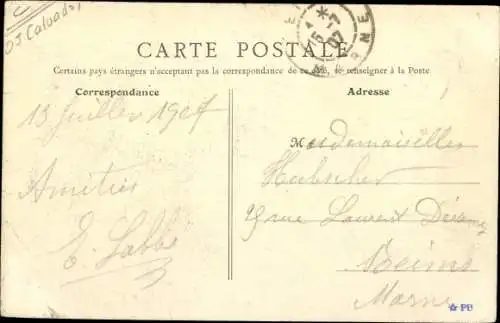 (J. Calvados)
15-7
07
MARNE
CARTE POSTALE
Certains pays étrangers n'acceptant pas la correspondance de ce côté, se renseigner à la Poste
Correspondance
Adresse
13 Juillet 1907
Mesdemoiselles
Amitiés
Hubscher
E. Labbé
rue Laurent
Reims
Marne
PB